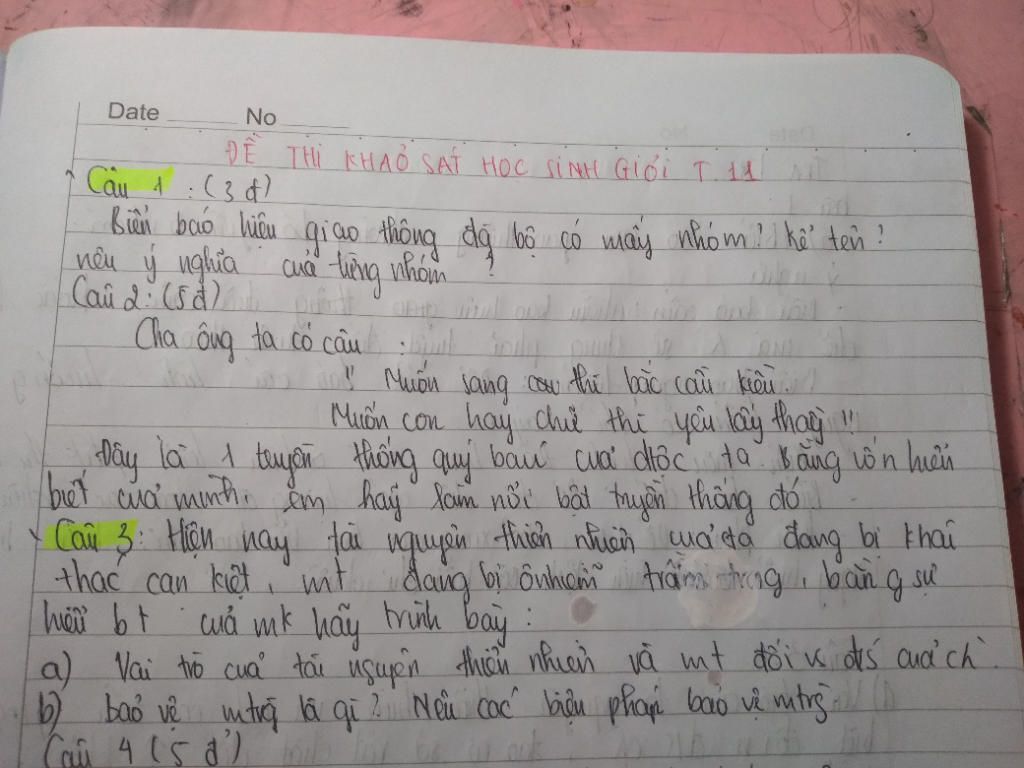 Date No
ĐỀ THI KHẢO SÁT HỌC SINH GIỎI T.11
Câu 1 : (3 đ)
Biển báo hiệu giao thông đg bộ có mấy nhóm? kể tên?
nêu ý nghĩa của từng nhóm ?
Câu 2 : (5 đ)
Cha ông ta có câu :
" Muốn sang thì bắc cầu kiều.
Muốn con hay chữ thì yêu lấy thầy "
Đây là 1 truyền thống quý báu của dtộc ta. Bằng vốn hiểu
biết của mình, em hãy làm nổi bật truyền thống đó
Câu 3 : Hiện nay tài nguyên thiên nhiên của ta đang bị khai
thác cạn kiệt, mt đang bị ônhiễm trầm trọng, bằng sự
hiểu bt của mk hãy trình bày :
a) Vai trò của tài nguyên thiên nhiên và mt đối vs đ/s của ch
b) bảo vệ mtrg là gì? Nêu các biện pháp bảo vệ mtrg
Câu 4 (5 đ)